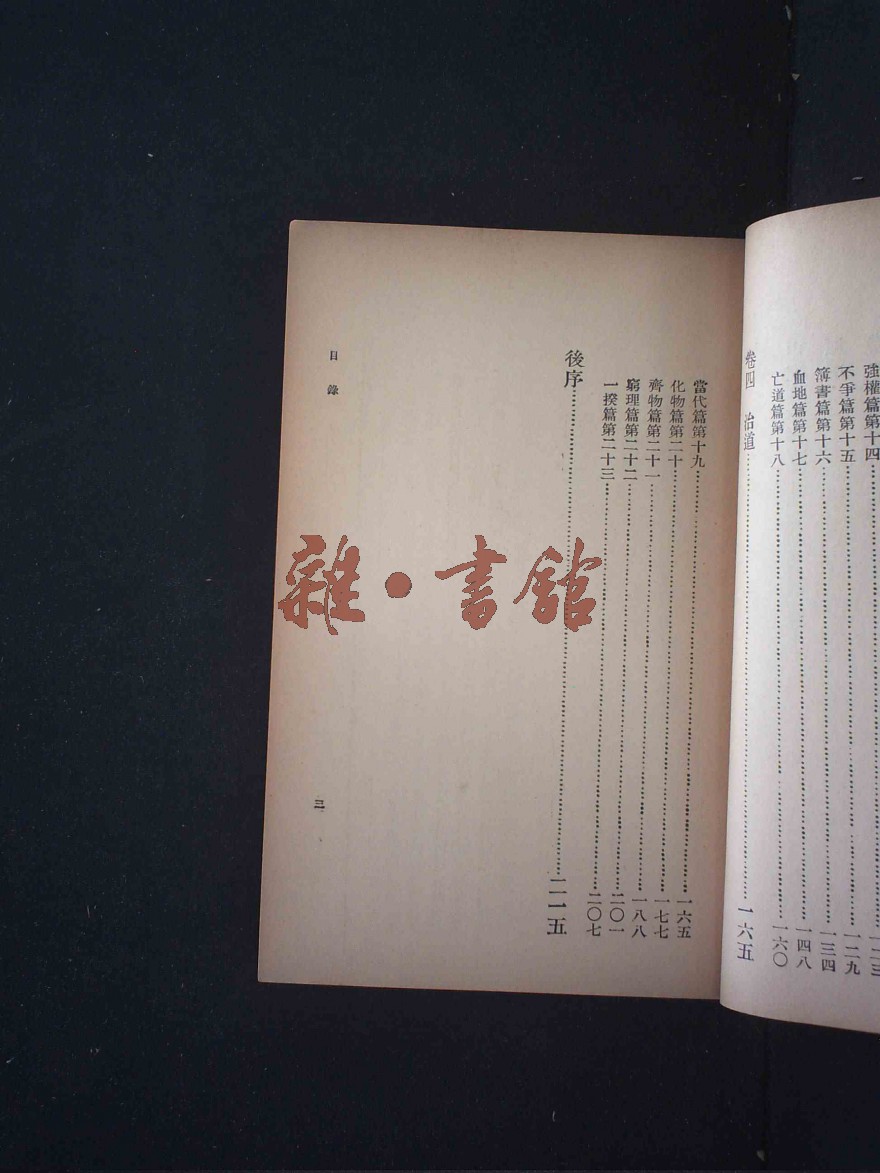 強權篇第十四……一二三
不爭篇第十五……一二九
簿書篇第十六……一三四
血地篇第十七……一四八
亡道篇第十八……一六〇
卷四 治道……一六五
當代篇第十九……一六五
化物篇第二十……一七七
齊物篇第二十一……一八八
窮理篇第二十二……二〇一
一揆篇第二十三……二〇七
後序……二一五
目錄
三
雜·書館